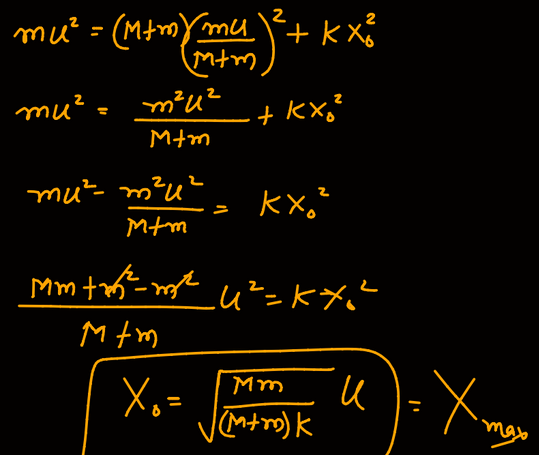 mu² = (M+m)(mu/(M+m))² + K X₀²
mu² = m²u²/(M+m) + K X₀²
mu² - m²u²/(M+m) = K X₀²
(Mm + m² - m²)/(M+m) u² = K X₀²
X₀ = √(Mm/((M+m)K)) u = X max